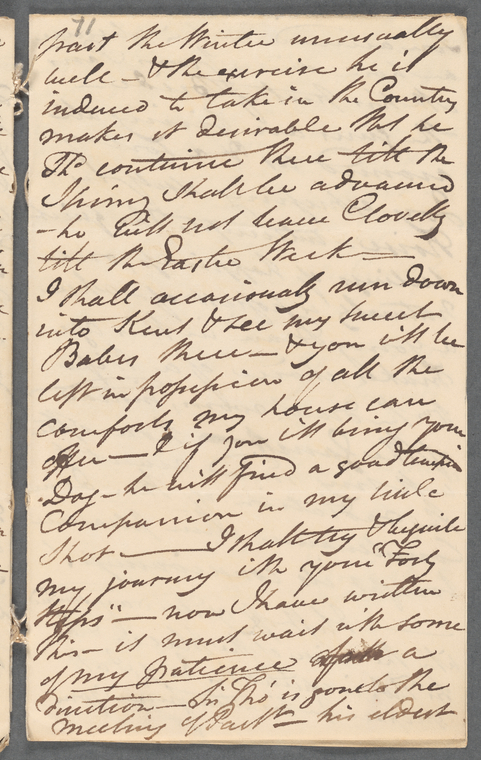 71
past the Winter unusually
well - & the exercise he is
induced to take in the Country
makes it desirable tht he
Shd. continue there till the
Spring shall be advanced
- he will not leave Clovelly
till the Easter Week -
I shall occasionally run down
into Kent & see my sweet
Babes there - & you wd. be
left in possession of all the
comforts my house can
offer - & if you wd. bring your
Dog - he will find a good
Companion in my little
Shot - I shall try & beguile
my journey wth your "Forty
Steps" - now I have written
this - it must wait with some
of my patience a
direction - Sir Thos. is gone to the
meeting of Parlt - his eldest